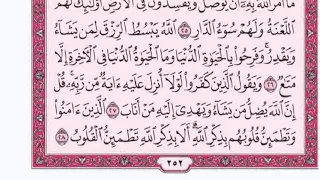 مَا أَمَرَ ٱللَّهُ بِهِۦٓ أَن يُوصَلَ وَيُفۡسِدُونَ فِي ٱلۡأَرۡضِ أُوْلَٰٓئِكَ لَهُمُ
ٱللَّعۡنَةُ وَلَهُمۡ سُوٓءُ ٱلدَّارِ ٢٥ ٱللَّهُ يَبۡسُطُ ٱلرِّزۡقَ لِمَن يَشَآءُ
وَيَقۡدِرُۚ وَفَرِحُواْ بِٱلۡحَيَوٰةِ ٱلدُّنۡيَا وَمَا ٱلۡحَيَوٰةُ ٱلدُّنۡيَا فِي ٱلۡأٓخِرَةِ إِلَّا
مَتَٰعٞ ٢٦ وَيَقُولُ ٱلَّذِينَ كَفَرُواْ لَوۡلَآ أُنزِلَ عَلَيۡهِ ءَايَةٞ مِّن رَّبِّهِۦۚ قُلۡ
إِنَّ ٱللَّهَ يُضِلُّ مَن يَشَآءُ وَيَهۡدِيٓ إِلَيۡهِ مَنۡ أَنَابَ ٢٧ ٱلَّذِينَ ءَامَنُواْ
وَتَطۡمَئِنُّ قُلُوبُهُم بِذِكۡرِ ٱللَّهِۗ أَلَا بِذِكۡرِ ٱللَّهِ تَطۡمَئِنُّ ٱلۡقُلُوبُ ٢٨
٢٥٢